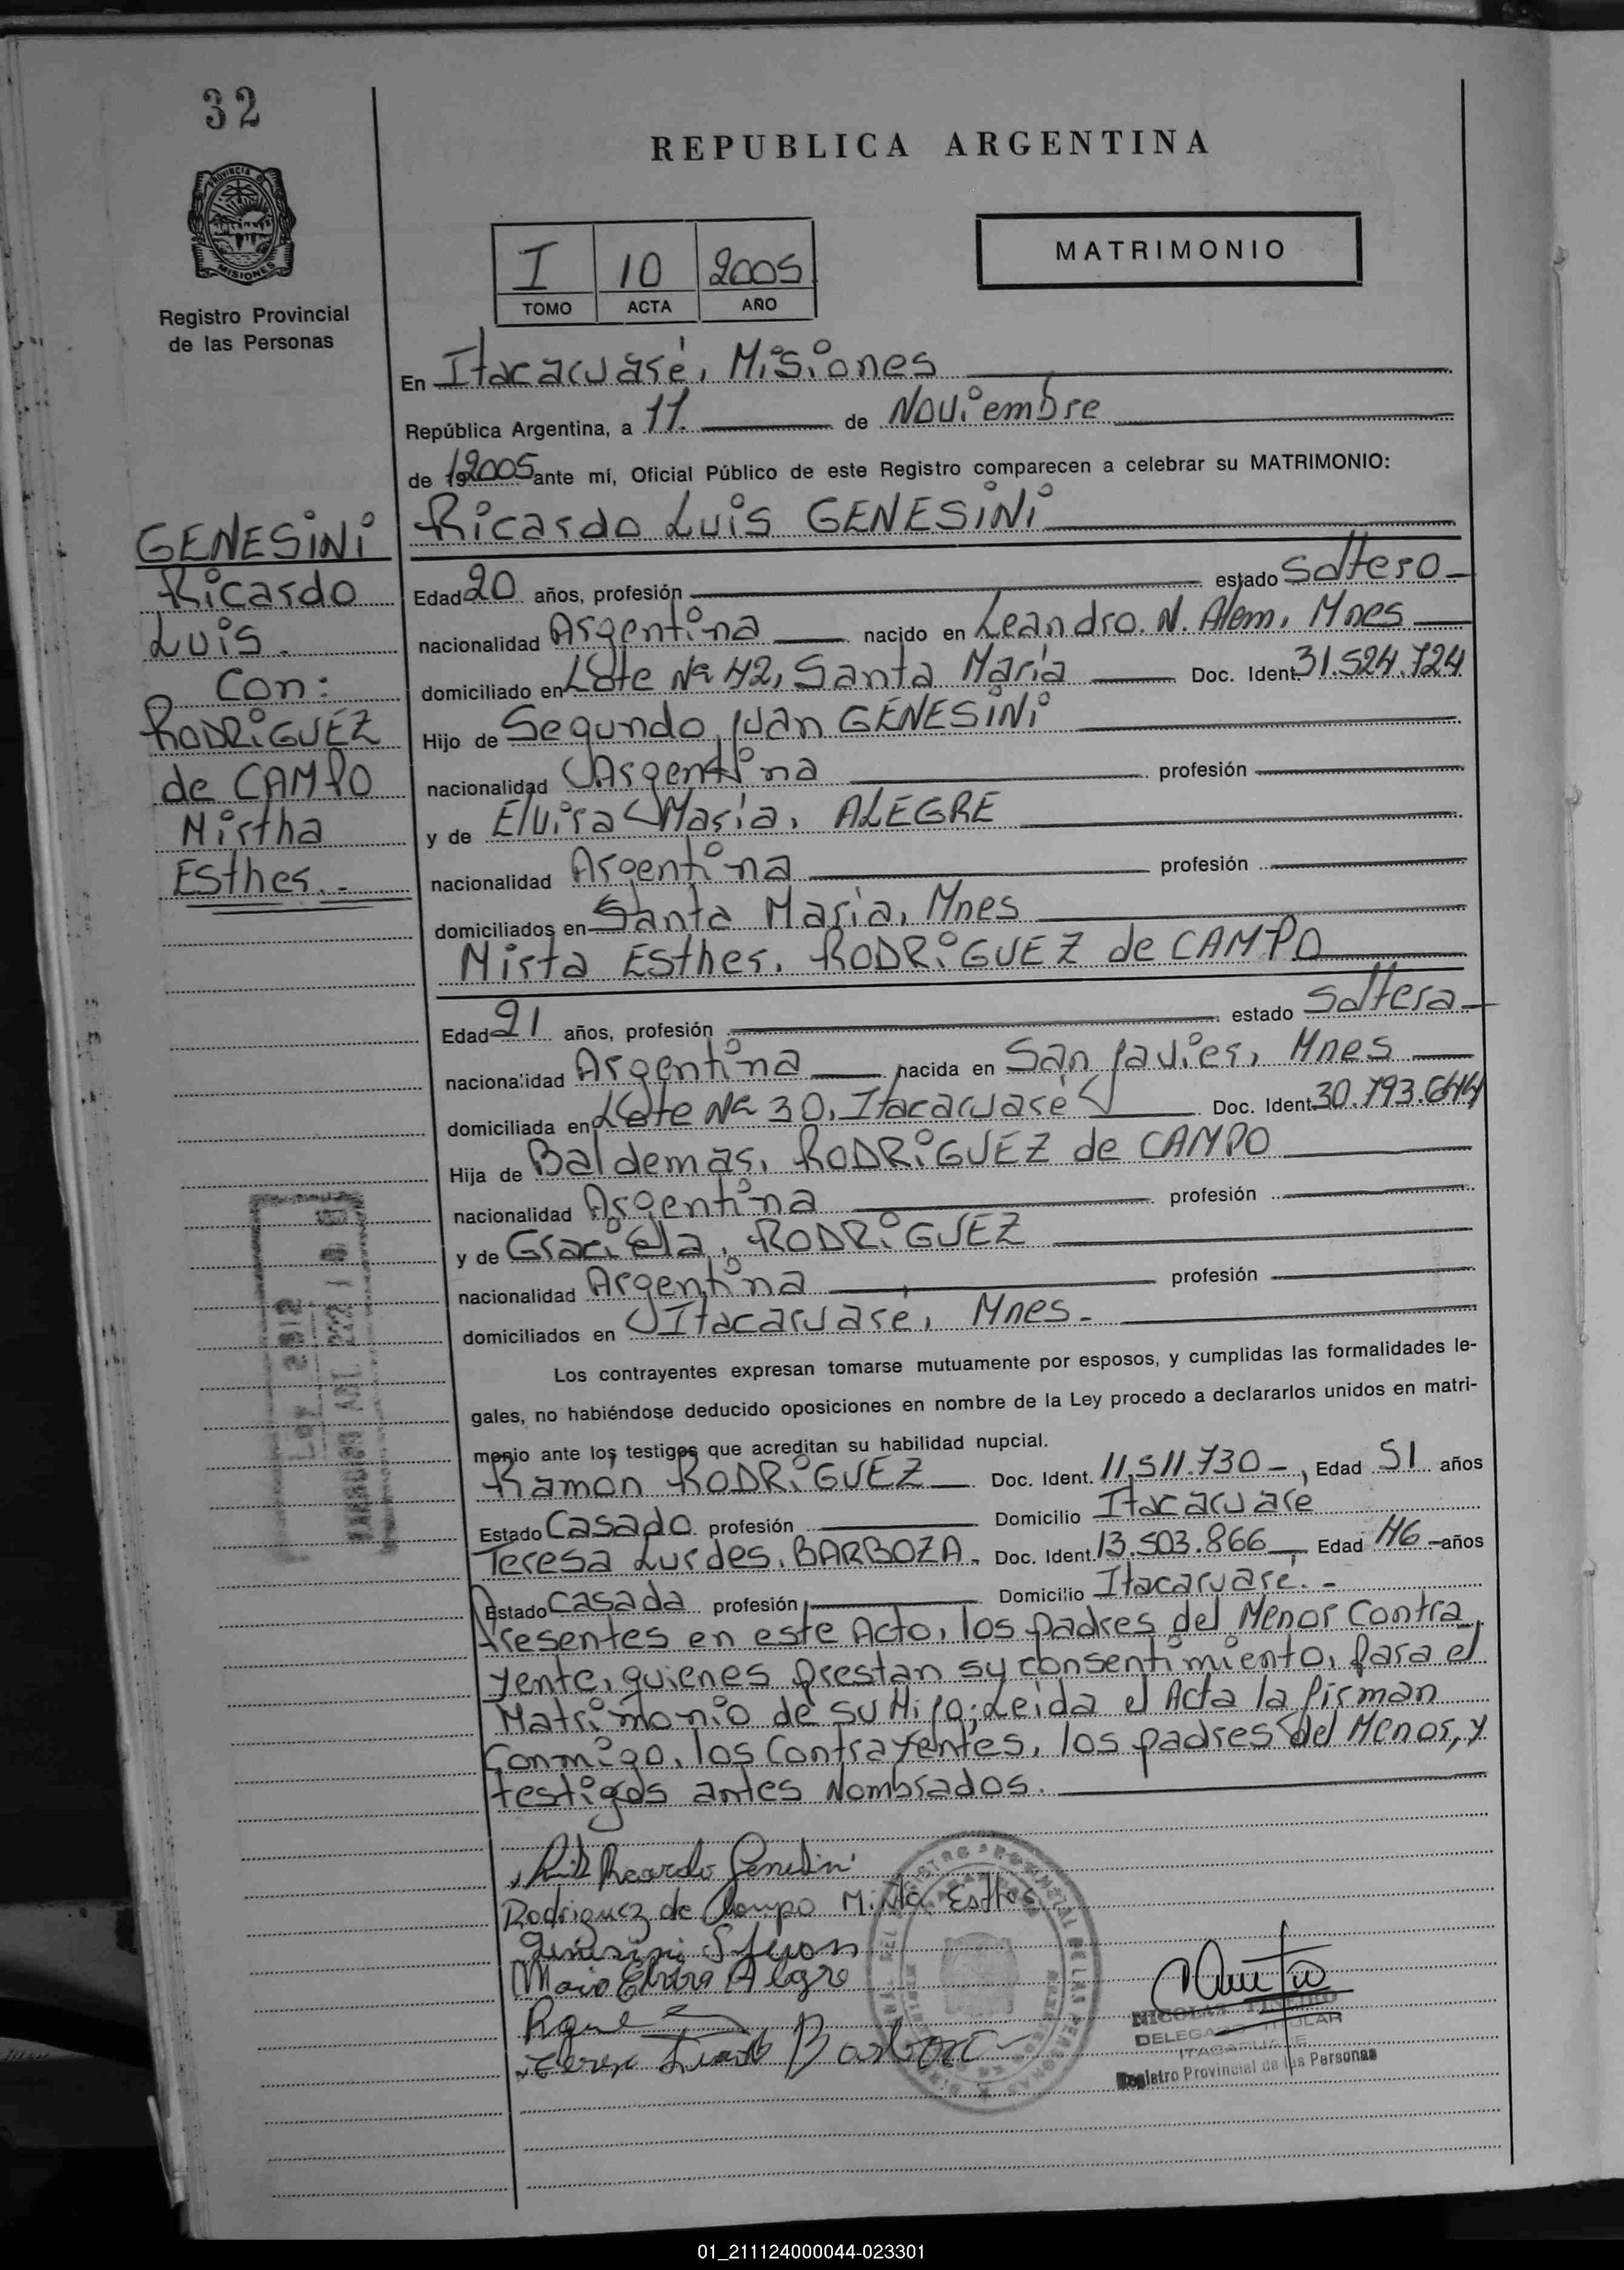 32
REPUBLICA ARGENTINA
PROVINCIA D
MISIONES
I 10 2005
TOMO ACTA AÑO
MATRIMONIO
Registro Provincial
de las Personas
En Itacaruaré, Misiones
República Argentina, a 11. de Noviembre
de 19 2005 ante mí, Oficial Público de este Registro comparecen a celebrar su MATRIMONIO:
GENESiNi
Ricardo
Luis.
Con:
RODRiGUEZ
de CAMPO
Mirtha
Esther.-
Ricardo Luis GENESiNi
Edad 20 años, profesión estado Soltero
nacionalidad Argentina nacido en Leandro. N. Alem, Mnes
domiciliado en Lote Nº 42, Santa María Doc. Ident. 31.524.724
Hijo de Segundo Juan GENESiNi
nacionalidad Argentina profesión
y de Elvira María, ALEGRE
nacionalidad Argentina profesión
domiciliados en Santa María, Mnes
Mirta Esther, RODRiGUEZ de CAMPO
Edad 21 años, profesión estado Soltera
nacionalidad Argentina nacida en San Javier, Mnes
domiciliada en Lote Nº 30, Itacaruaré Doc. Ident. 30.793.644
Hija de Baldemar, RODRiGUEZ de CAMPO
nacionalidad Argentina profesión
y de Graciela, RODRiGUEZ
nacionalidad Argentina profesión
domiciliados en Itacaruaré, Mnes.
Los contrayentes expresan tomarse mutuamente por esposos, y cumplidas las formalidades le-
gales, no habiéndose deducido oposiciones en nombre de la Ley procedo a declararlos unidos en matri-
monio ante los testigos que acreditan su habilidad nupcial.
Ramon RODRiGUEZ Doc. Ident. 11.511.730 Edad 51 años
Estado Casado profesión Domicilio Itacaruaré
Teresa Lurdes, BARBOZA Doc. Ident. 13.503.866 Edad 46 años
Estado Casada profesión Domicilio Itacaruaré.
Presentes en este Acto, los padres del Menor Contra
yente, quienes prestan su consentimiento, para el
Matrimonio de su Hijo; Leida el Acta la firman
Conmigo, los Contrayentes, los padres del Menor, y
testigos antes Nombrados.
Luis Ricardo Genesini
Rodriguez de Campo Mirta Esther
Genesini S Juan
Maria Elvira Alegre
Teresa Barboza
NICOLAS PIÑEIRO
DELEGADO TITULAR
ITACARUARE
Registro Provincial de las Personas
01_211124000044-023301